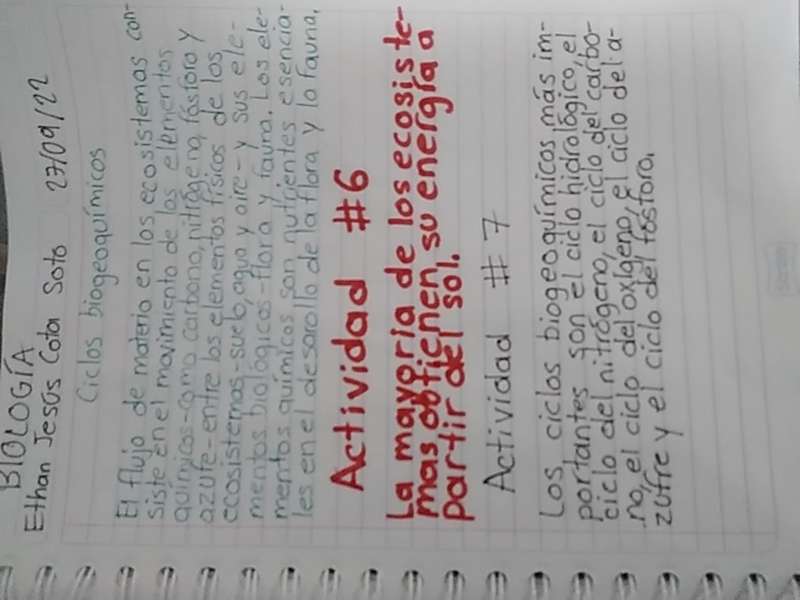 BIOLOGÍA
Ethan Jesús Cota Soto 27/09/22
Ciclos biogeoquímicos
El flujo de materia en los ecosistemas con-
siste en el movimiento de los elementos
químicos-como carbono, nitrógeno, fósforo y
azufe-entre los elementos físicos de los
ecosistemas-suelo, agua y aire-y sus ele-
mentos biológicos-flora y fauna. Los ele-
mentos químicos son nutrientes esencia-
les en el desarollo de la flora y la fauna.
Actividad #6
La mayoría de los ecosiste-
mas obtienen su energía a
partir del sol.
Actividad #7
Los ciclos biogeoquímicos más im-
portantes son el ciclo hidrológico, el
ciclo del nitrógeno, el ciclo del carbo-
no, el ciclo del oxígeno, el ciclo del a-
zufre y el ciclo del fósforo.